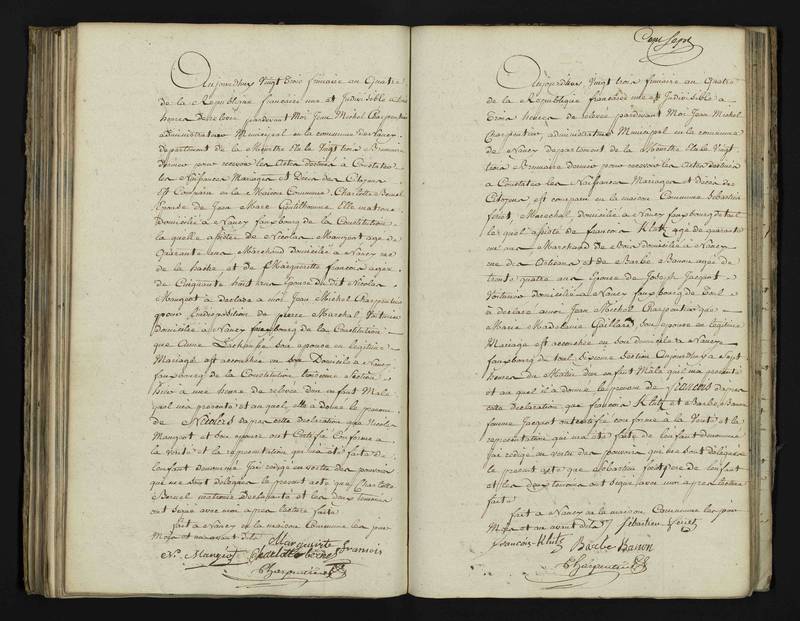 Aujourd'huy Vingt trois frimaire an Quatre
de la République française une et Indivisible a
heures de relevée pardevant Moi Jean Michel Charpentier
administrateur Municipal en la commune de Nancy
département de la Meurthe Elu le Vingt trois Brumaire
dernier pour recevoir les actes destinés à Constater
les Naissances Mariages et Décès des Citoyens
est Comparu en la Maison Commune Charlotte
Epouse de Jean Marc Gentilhomme Elle matrone
domiciliée a Nancy fauxbourg de la Constitution
laquelle assistée de Nicolas Mangeot agé de
Quarante ans Marchand domicilié a Nancy rue
de la hache et de Marguerite francois agée
de Cinquante huit ans Epouse dudit Nicolas
Mangeot a déclaré a moi Jean Michel Charpentier
que pour l'indisposition de pierre Marechal Voiturier
domicilié a Nancy fauxbourg de la Constitution
que Anne son epouse en légitime
Mariage est accouchée en son Domicile a Nancy
fauxbourg de la Constitution troisieme Section
hier a une heure de relevée d'un enfant Male
quel ma presenté et auquel elle a donné le prenom
de Nicolas dapres cette déclaration que Nicolas
Mangeot et son epouse ont Certifié Conforme a
la verité et la représentation qui ma été faite de
l'enfant dénommé J'ai rédigé en vertu des pouvoirs
qui me sont délégués le present acte que Charlotte
matrone Déclarante et les deux temoins
ont signé avec moi apres lecture faite
fait a Nancy en la maison Commune les jour
Mois et an avant dits
Marguerite francois
Ns. Mangeot
Charpentier
Aujourd'huy Vingt trois frimaire an Quatre
de la République française une et Indivisible a
trois heures de relevée pardevant Moi Jean Michel
Charpentier, administrateur Municipal en la commune
de Nancy département de la Meurthe Elu le Vingt
trois Brumaire dernier pour recevoir les actes destinés
a Constater les Naissances Mariages et Décès des
Citoyens, est comparu en la maison Commune Sebastien
feriet, Marechal domicilié a Nancy fauxbourg de toul
lequel assisté de francois Klutz agé de quarante
ans Marchand de Bois domicilié a Nancy
rue des Artisans et de Barbe Banon agée de
trente quatre ans Epouse de Joseph Jacquot
Voiturier domiciliée a Nancy fauxbourg de Toul
a déclaré a moi Jean Michel Charpentier que
Marie Madelaine Gaillard son epouse en legitime
Mariage est accouchée en son domicile a Nancy
fauxbourg de toul Section Aujourdhuy a Sept
heures du Matin d'un enfant Male quil ma presenté
et auquel il a donné le prenom de francois dapres
cette déclaration que francois Klutz et Barbe Banon
femme Jacquot ont certifié conforme à la Verité et la
représentation qui ma été faite de l'enfant denommé
J'ai rédigé en vertu des pouvoirs qui me sont délégués
le present acte que Sebastien feriet pere de l'enfant
et les deux temoins ont signé avec moi apres lecture
faite
fait a Nancy en la maison Commune les jour
Mois et an avant dits Sébastien feriet
francois Klutz Barbe Banon
Charpentier